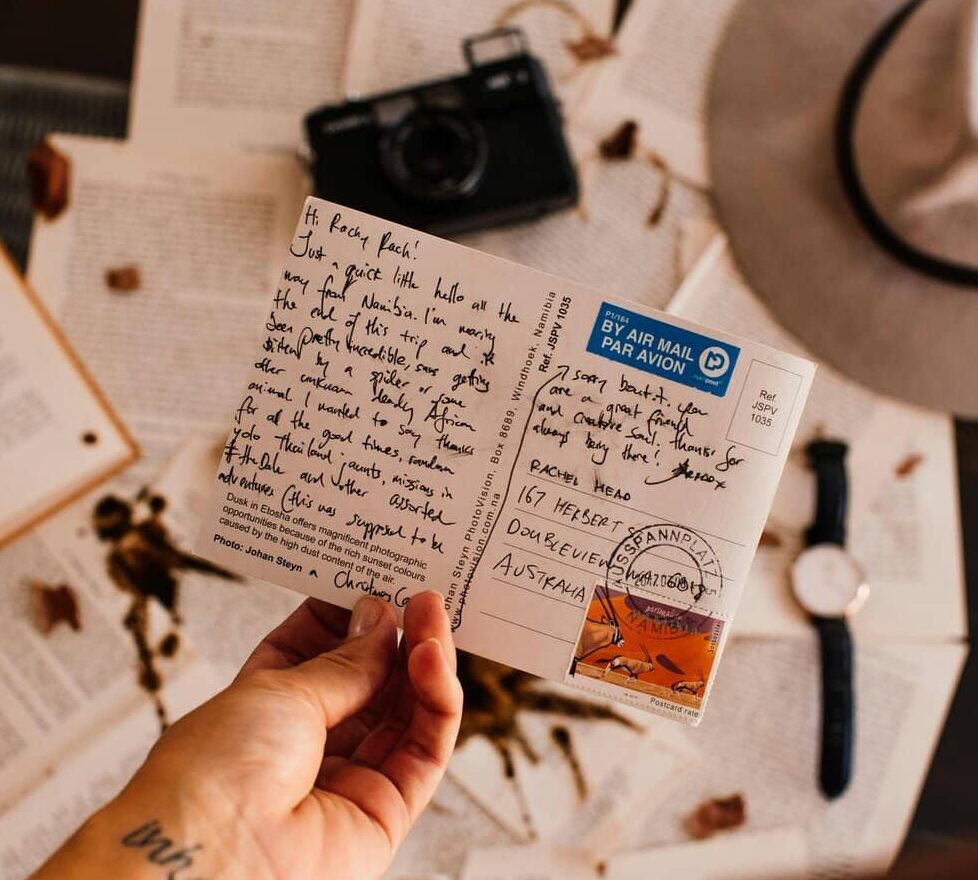 Hi Rachy Rach!
Just a quick little hello all the
way from Namibia. I'm nearing
the end of this trip and it
been pretty incredible, sans getting
bitten by a spider or some
other unknown deadly African
animal. I wanted to say thanks
for all the good times, random
yolo Thailand jaunts, missions in
the Dale and other assorted
adventures (this was supposed to be
a Christmas
Dusk in Etosha offers magnificent photographic
opportunities because of the rich sunset colours
caused by the high dust content of the air.
Photo: Johan Steyn
Johan Steyn PhotoVision, Box 8689, Windhoek, Namibia
www.photovision.com.na
Ref. JSPV 1035
P1/164
BY AIR MAIL
PAR AVION
nampost
Ref.
JSPV
1035
sorry bout it. you
are a great friend
and creative soul. thanks for
always being there!
RACHEL HEAD
167 HERBERT
DOUBLEVIEW
AUSTRALIA
AUSSPANNPLATZ
NAMIBIA
Postcard rate